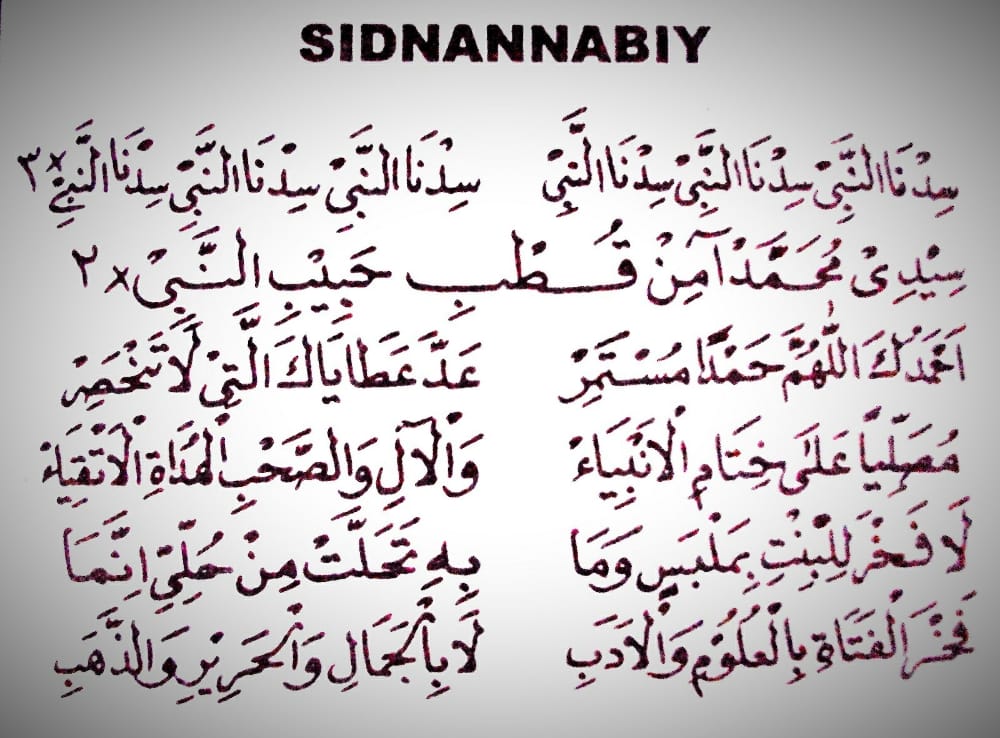 SIDNANNABIY
سِدْنَا النَّبِيْ سِدْنَا النَّبِيْ سِدْنَا النَّبِيْ سِدْنَا النَّبِيْ سِدْنَا النَّبِيْ سِدْنَا النَّبِيْ ×٣
سِيْدِىْ مُحَمَّدْ آمِنْ قُطْبِ حَبِيْبِ النَّبِىْ ×٢
اَحْمَدُكَ اللّٰهُمَّ حَمْدًا مُسْتَمِرْ عَدَّ عَطَايَاكَ الَّتِيْ لَا تَنْحَصِرْ
مُصَلِّيًا عَلَى خِتَامِ الْاَنْبِيَاءْ وَالْآلِ وَالصَّحْبِ الْهُدَاةِ الْاَتْقِيَاءْ
لَا فَخْرَ لِلْبِنْتِ بِمَلْبَسٍ وَمَا بِهِ تَحَلَّتْ مِنْ حُلِيٍّ اِنَّمَا
فَخْرُ الْفَتَاةِ بِالْعُلُوْمِ وَالْاَدَبِ لَا بِالْجَمَالِ وَالْحَرِيْرِ وَالذَّهَبِ